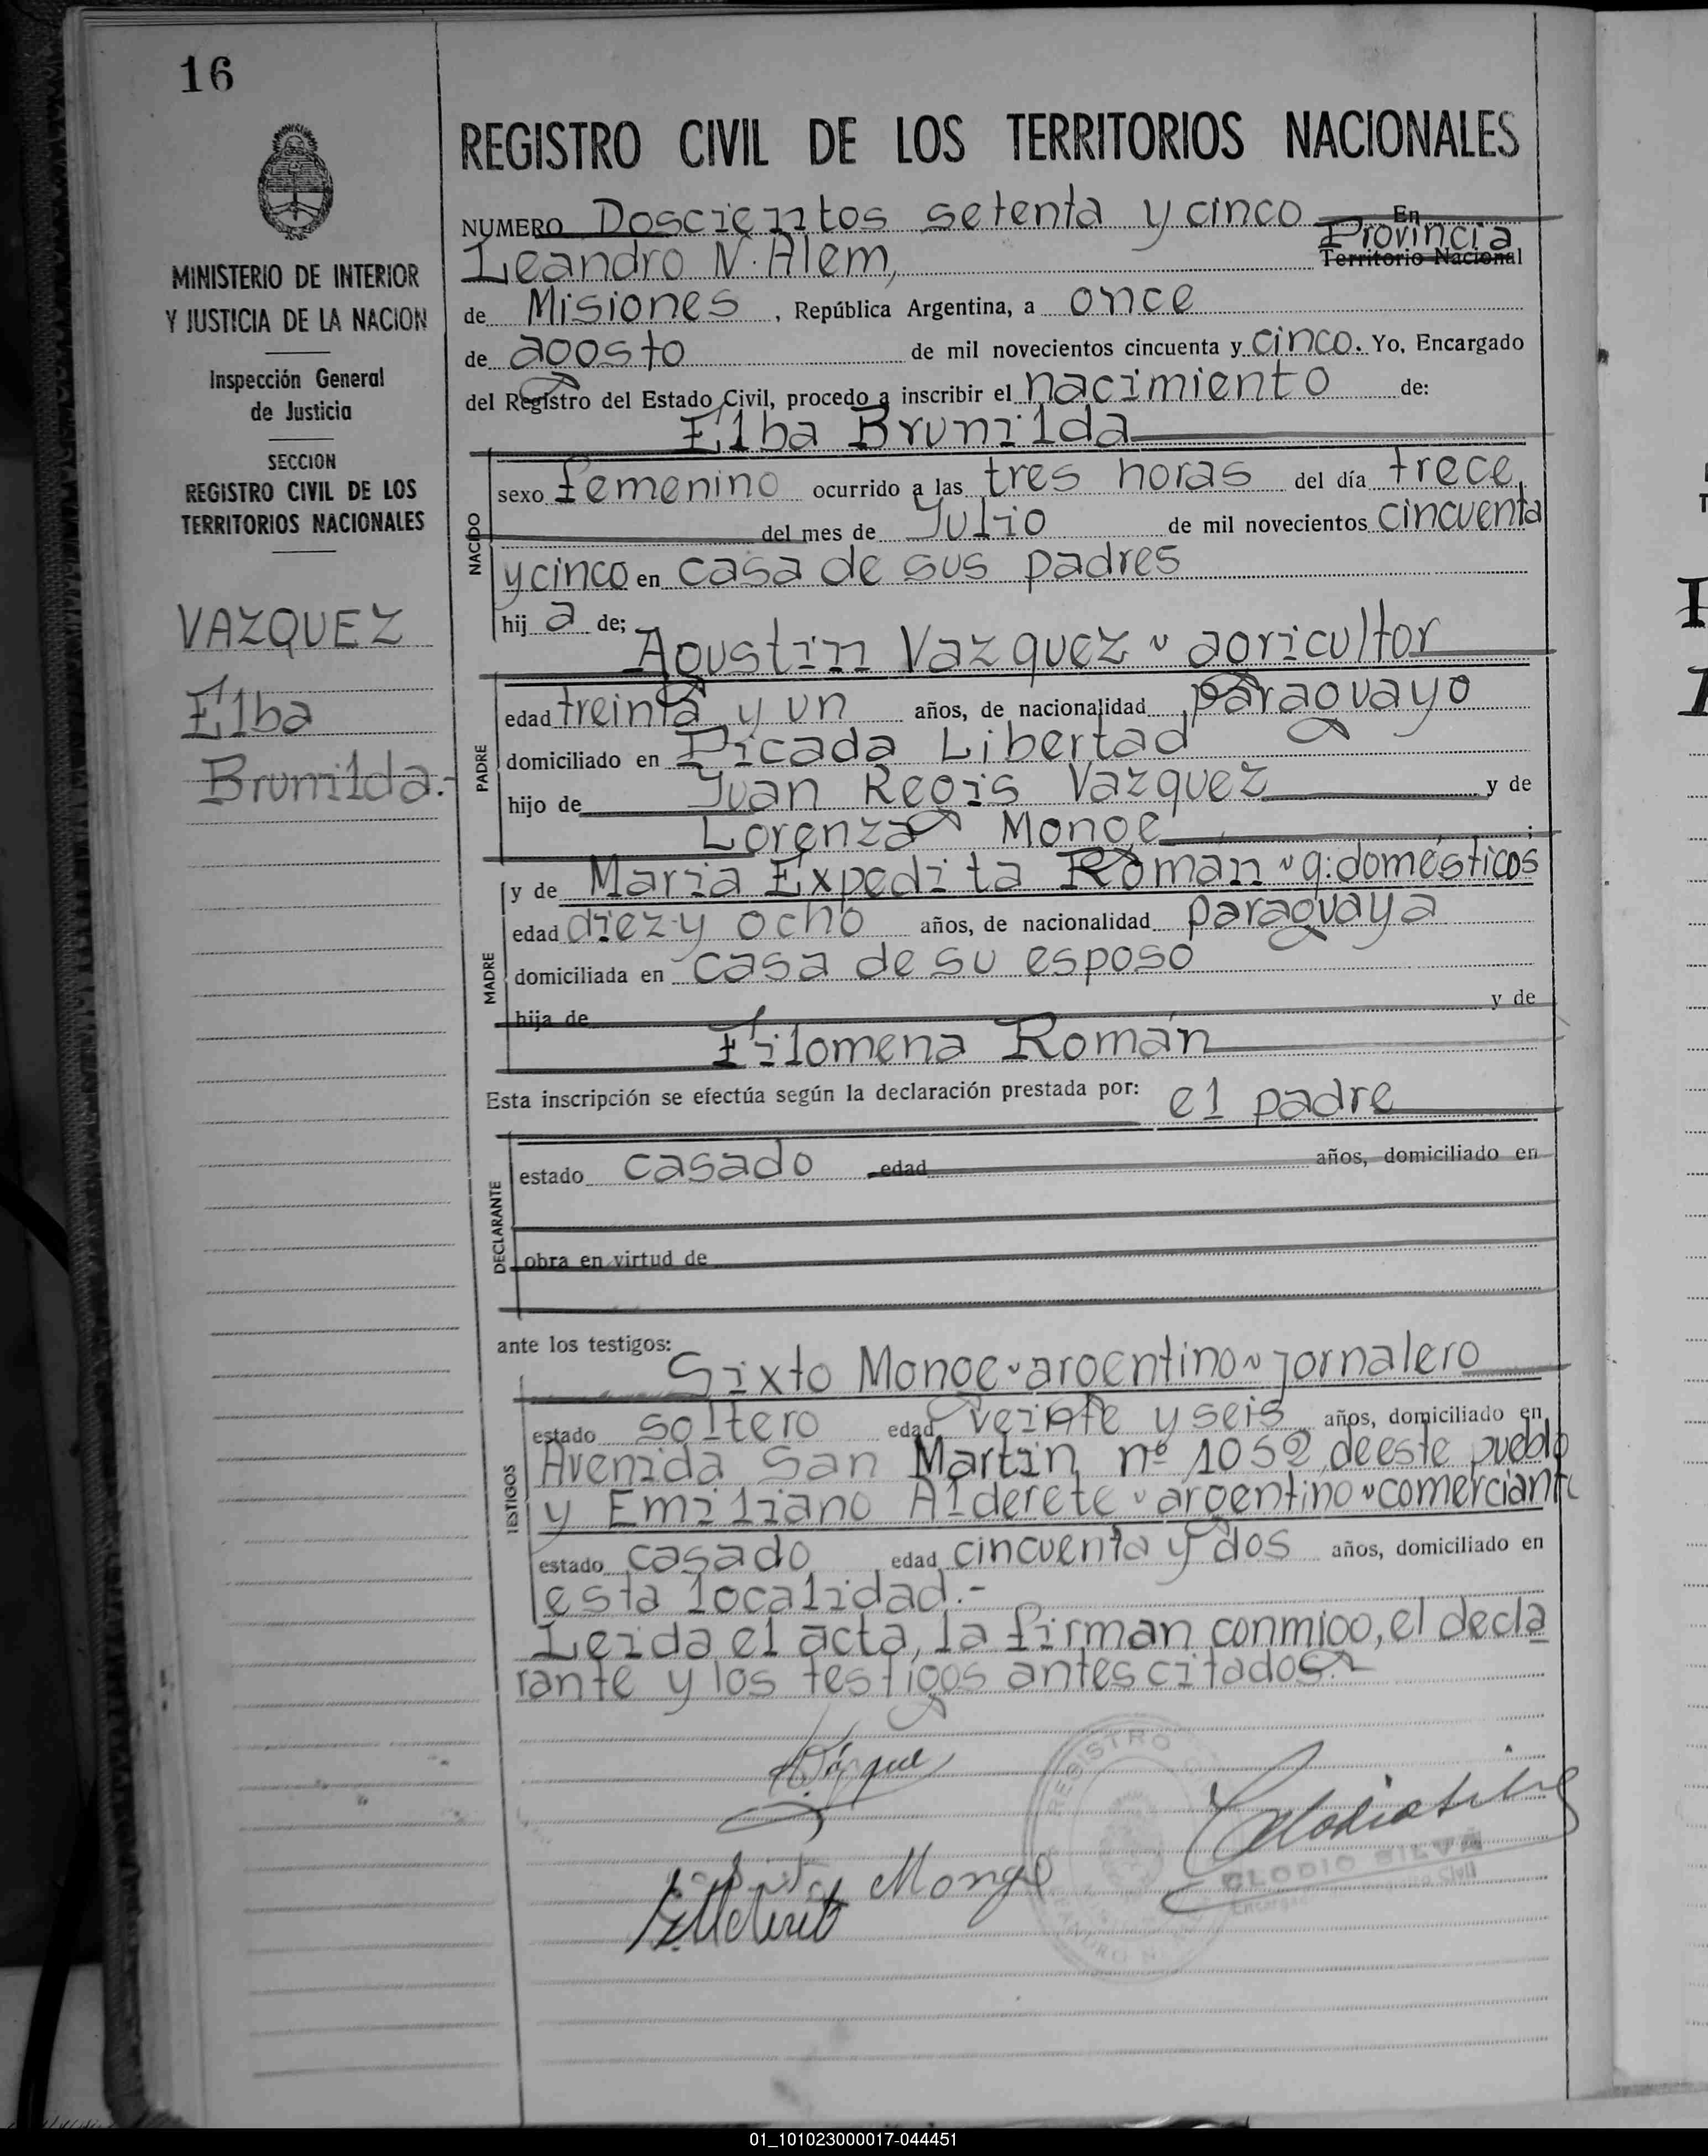 16
REGISTRO CIVIL DE LOS TERRITORIOS NACIONALES
NUMERO Doscientos setenta y cinco En
Leandro N. Alem, Provincia Territorio Nacional
de Misiones, República Argentina, a once
de agosto de mil novecientos cincuenta y cinco. Yo, Encargado
del Registro del Estado Civil, procedo a inscribir el nacimiento de:
Elba Brunilda
NACIDO
sexo femenino ocurrido a las tres horas del día trece
del mes de Julio de mil novecientos cincuenta
y cinco en casa de sus padres
hij a de;
Agustin Vazquez ~ agricultor
PADRE
edad treinta y un años, de nacionalidad paraguayo
domiciliado en Picada Libertad
hijo de Juan Regis Vazquez y de
Lorenza Monge ;
MADRE
y de Maria Expedita Román ~ q: domésticos
edad diez y ocho años, de nacionalidad paraguaya
domiciliada en casa de su esposo
hija de y de
Filomena Román
Esta inscripción se efectúa según la declaración prestada por: el padre
DECLARANTE
estado casado edad años, domiciliado en
obra en virtud de
ante los testigos:
Sixto Monge ~ argentino ~ jornalero
TESTIGOS
estado soltero edad veinte y seis años, domiciliado en
Avenida San Martin nº 1052, de este pueblo
y Emiliano Alderete ~ argentino ~ comerciante
estado casado edad cincuenta y dos años, domiciliado en
esta localidad.-
Leida el acta, la firman conmigo, el decla
rante y los testigos antes citados.
REGISTRO
Monge
CLODIO SILVA
MINISTERIO DE INTERIOR
Y JUSTICIA DE LA NACION
Inspección General
de Justicia
SECCION
REGISTRO CIVIL DE LOS
TERRITORIOS NACIONALES
VAZQUEZ
Elba
Brunilda.-
01_101023000017-044451